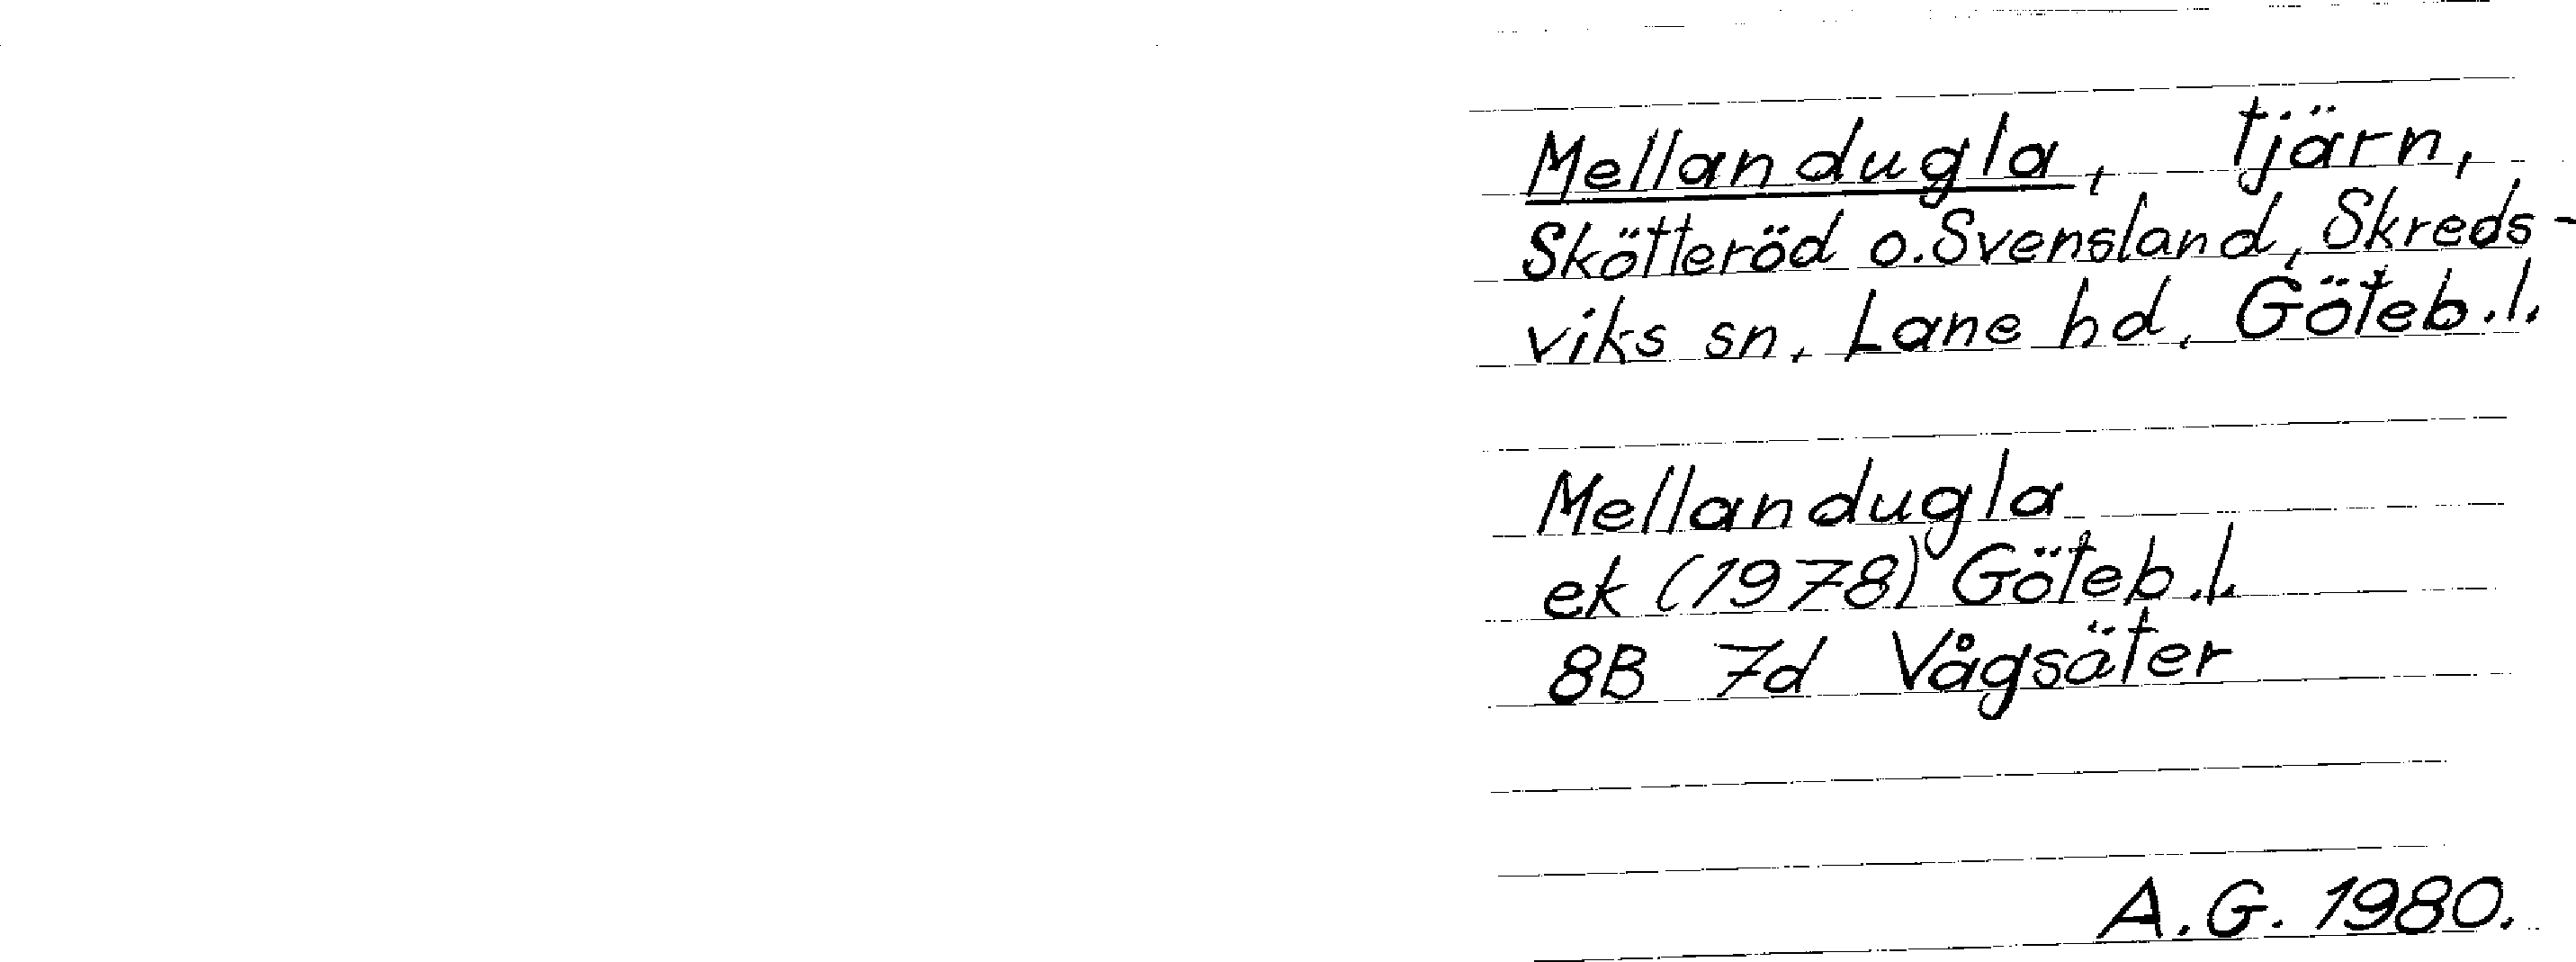 Mellandugla, tjärn,
Skötteröd o. Svensland, Skreds-
viks sn, Lane hd, Göteb.l.
Mellandugla
ek (1978) Göteb.l.
8B 7d Vågsäter
A.G. 1980.